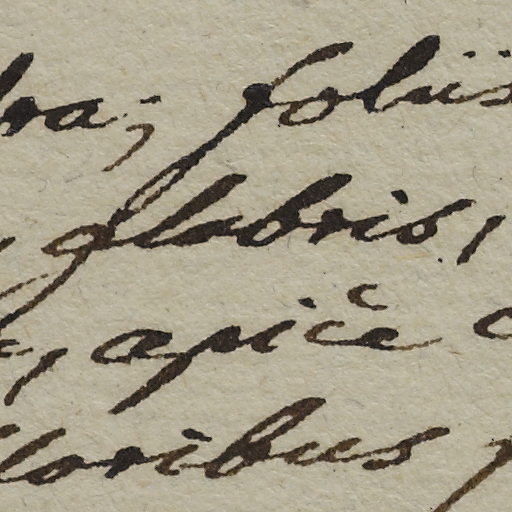 foliis
glabris,
apice
floribus